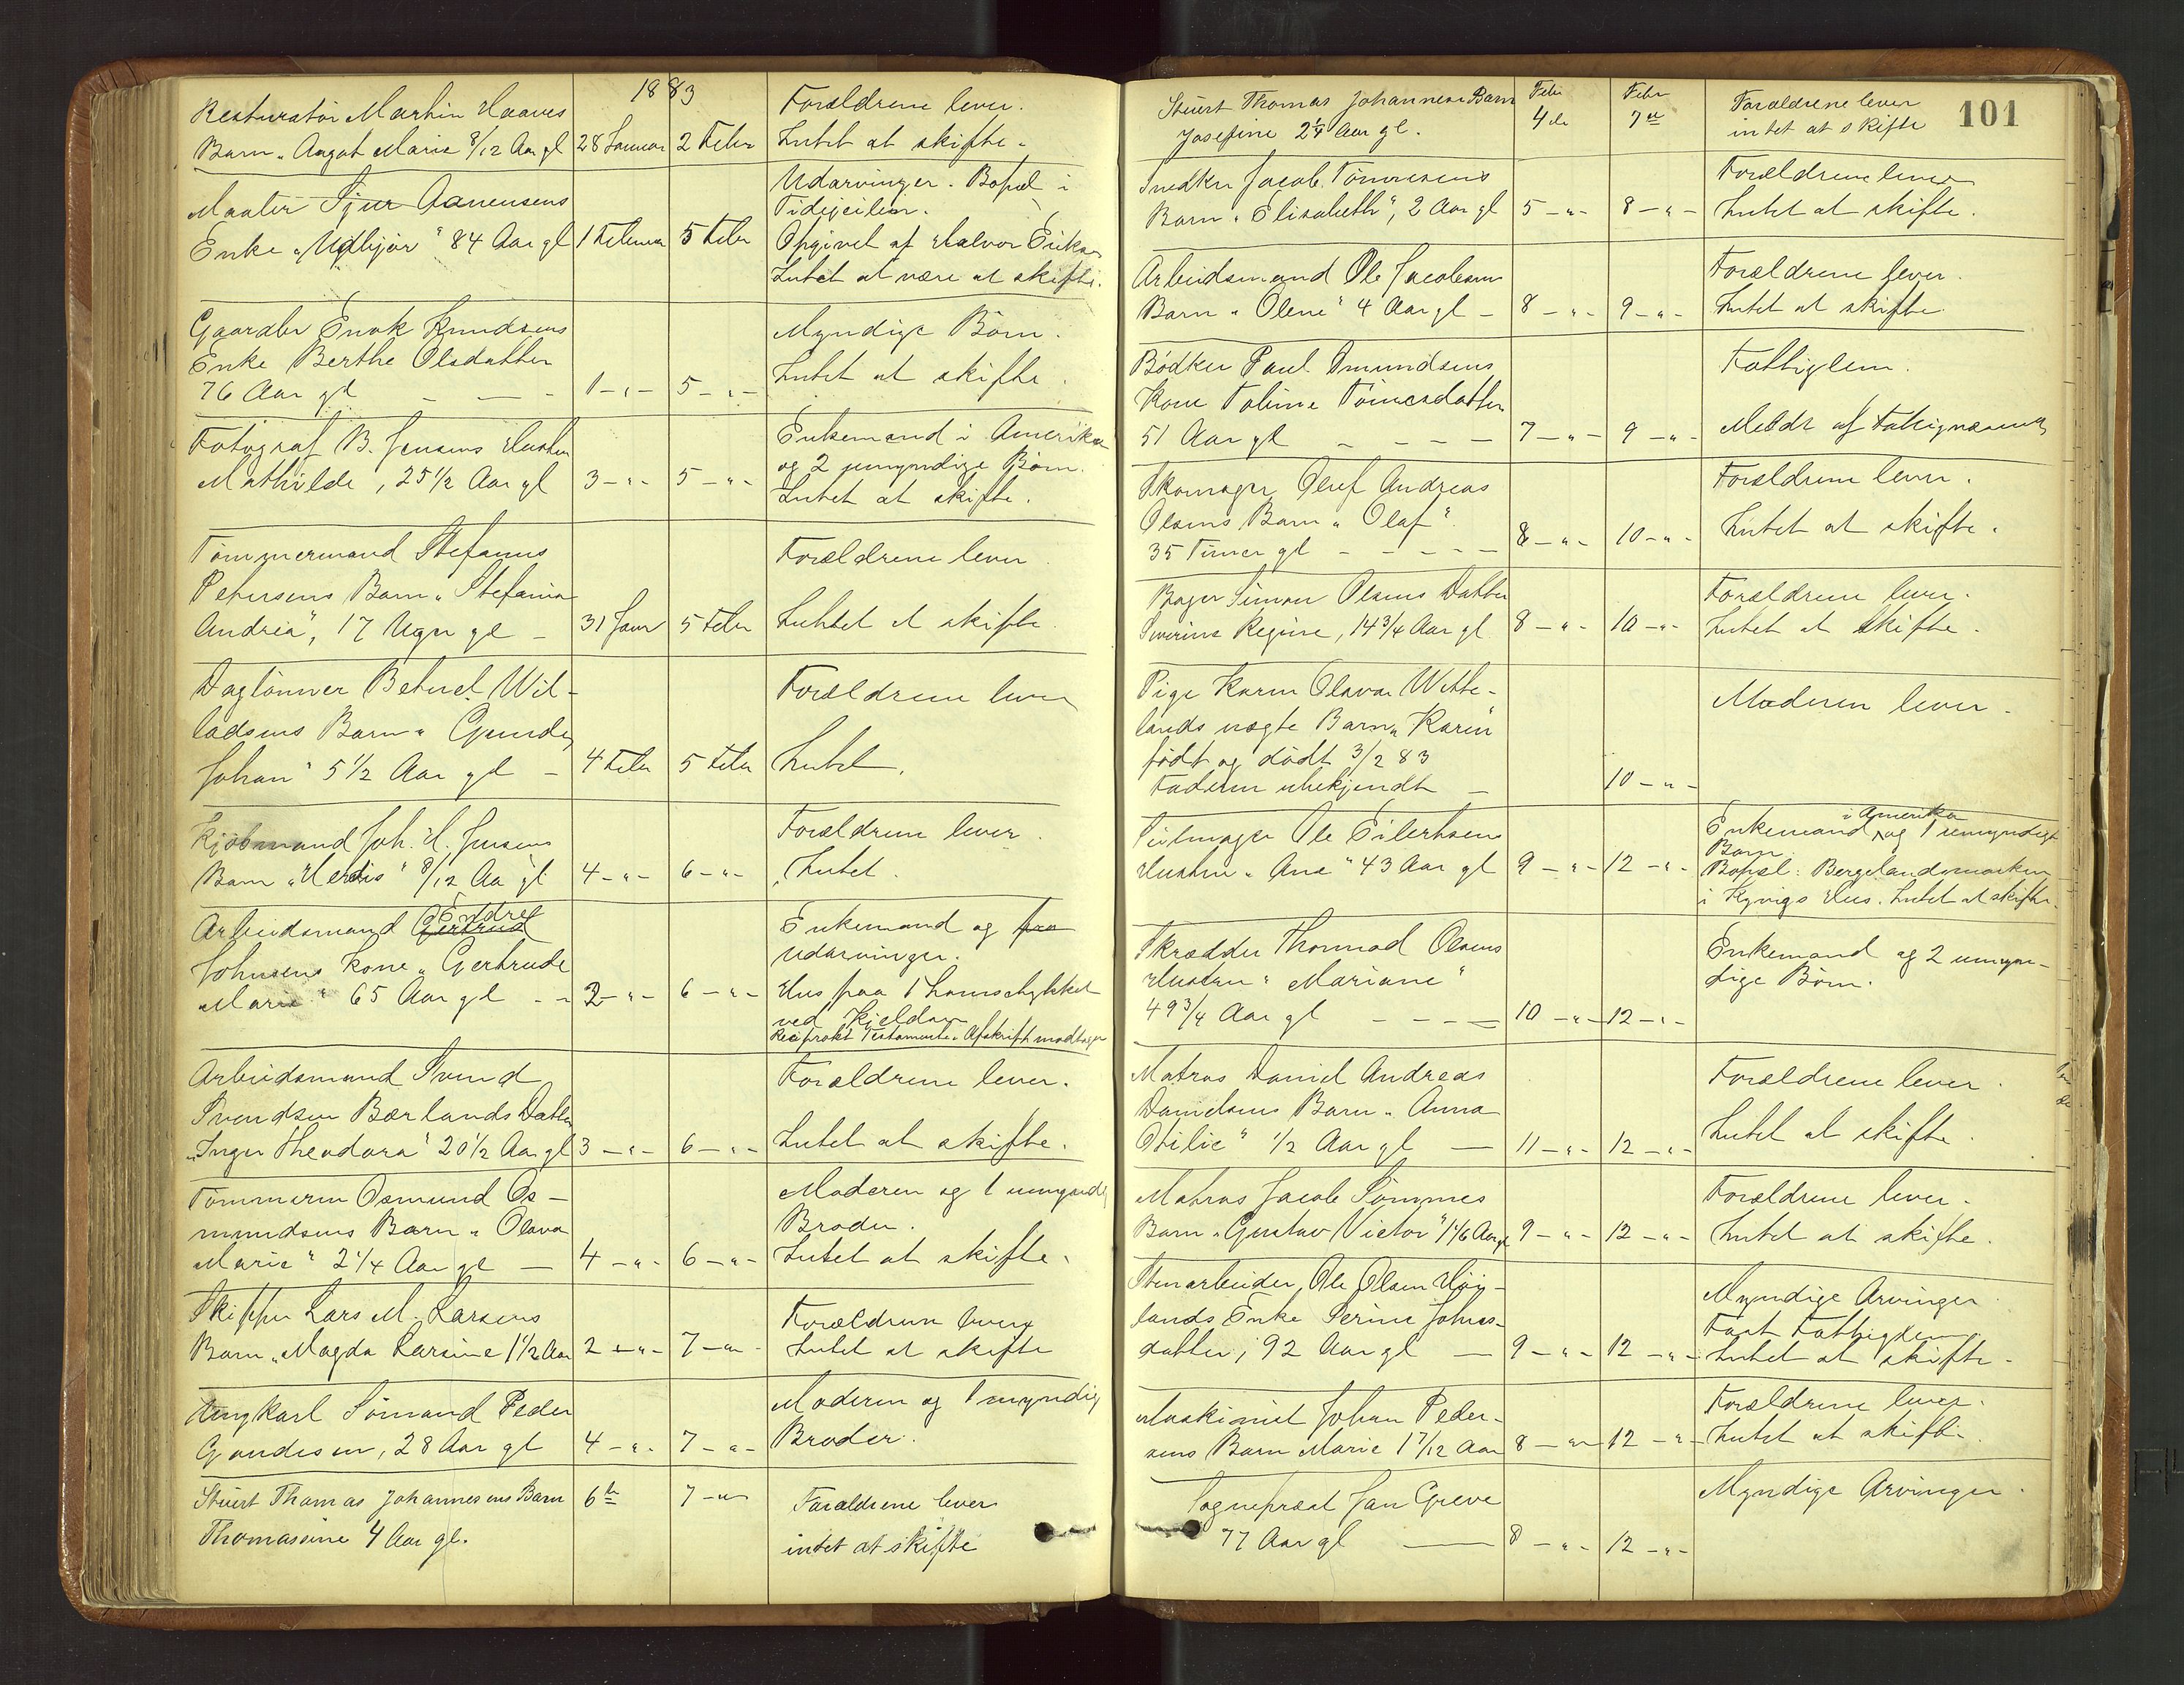 1883
Resturatør Martin Haaves
Barn „Aagot Marie 8/12 Aar gl 28 Januar 2 Febr
Forældrene lever.
Intet at skifte.
Maaler Sjur Aanensens
Enke „ 84 Aar gl 1 Februar 5 Febr
Udarvinger. Bopæl i
Opgivet af Halvor Eriksen
Intet at være at skifte.
Gaardbr Enok Knudsens
Enke Berthe Olsdatter
76 Aar gl - — - 1 - „ - 5 - „ -
Myndige Børn.
Intet at skifte.
Fotograf B. Jensens Hustru
Mathilde, 25 1/2 Aar gl 3 - „ - 5 - „ -
Enkemand i Amerika
og 2 umyndige Børn.
Intet at skifte.
Tømmermand Stefanus
Petersens Barn „Stefania
Andrea", 17 Uger gl - 31 Janr 5 Febr
Forældrene lever
Intet at skifte.
Dagtønner Betuel Wil-
ladsens Barn „Gunder
Johan" 5 1/2 Aar gl - 4 Febr 5 Febr
Forældrene lever
Intet.
Kjøbmand Joh. H. Jensens
Barn „Herdis" 8/12 Aar gl 4 - „ - 6 - „ -
Forældrene lever.
Intet.
Endre
Arbeidsmand Gertrud
Johnsens Kone „Gertrude
Marie" 65 Aar gl - - 2 - „ - 6 - „ -
Enkemand og fra
Udarvinger.
Hus paa
ved Kjeldar
Reciprokt Testamente. Afskrift modtager
Arbeidsmand Svend
Svendsen Bærlands Datter
„Inger Theodora" 20 1/2 Aar gl 3 - „ - 6 - „ -
Forældrene lever.
Intet at skifte.
Tømmerm Osmund Os-
mundsens Barn „Olava
Marie" 2 1/4 Aar gl — 4 - „ - 6 - „ -
Moderen og 1 umyndig
Broder.
Intet at skifte.
Skipper Lars M. Larsens
Barn „Magda Larsine 1 1/2 Aar 2 - „ - 7 - „ -
Forældrene lever
Intet at skifte
Ungkarl Sømand Peder
Gundesen, 28 Aar gl 4 - „ - 7 - „ -
Moderen og 1 myndig
Broder.
Stuert Thomas Johannesens Barn 6te 7 - „
Thomasine 4 Aar gl.
Forældrene lever
intet at skifte
101
Stuert Thomas Johannesens Barn Febr Febr
Josefine 2 1/4 Aar gl. 4de 7de
Forældrene lever
intet at skifte
Snedker Jacob Tønnesens
Barn „Elisabeth", 2 Aar gl 5 - „ - 8 - „ -
Forældrene lever
Intet at skifte.
Arbeidsmand Ole Jacobsens
Barn „Olene" 4 Aar gl - 8 - „ - 9 - „ -
Forældrene lever.
Intet at skifte
Bødker Paul Omundsens
Kone Toline Tønnesdatter
51 Aar gl - - - — 7 - „ - 9 - „ -
Fattiglem.
Meldt af Fattigvæsenet
Skomager Oluf Andreas
Olsens Barn „Olaf"
35 Timer gl - - - - — 8 - „ - 10 - „ -
Forældrene lever.
Intet at skifte.
Bager Simon Olsens Datter
Severine Regine, 14 3/4 Aar gl 8 - „ - 10 - „ -
Forældrene lever.
Intet at skifte.
Pige Karen Olava Witte-
lands uægte Barn „Karen"
født og dødt 3/2 83
Faderen ubekjendt — 10 - „ -
Moderen lever.
Seilmager Ole Eilertsens
Hustru „Ane" 43 Aar gl 9 - „ - 12 - „ -
i Amerika
Enkemand og 1 umyndigt
Barn.
Bopæl: Bergelandsmarken
i Kyvigs Hus. Intet at skifte.
Skrædder Thormod Olsens
Hustru „Mariane"
49 3/4 Aar gl - - - — 10 - „ - 12 - „ -
Enkemand og 2 umyn-
dige Børn.
Matros Daniel Andreas
Danielsens Barn „Anna
Otilie" 1/2 Aar gl — 11 - „ - 12 - „ -
Forældrene lever.
Intet at skifte.
Matros Jacob Sømmes
Barn „Gustav Victor" 1 1/6 Aar gl 9 - „ - 12 - „ -
Forældrene lever.
Intet at skifte.
Stenarbeider Ole Olsen Høy-
lands Enke Serine Johns-
datter, 92 Aar gl — 9 - „ - 12 - „ -
Myndige Arvinger
Fast Fattiglem
Intet at skifte.
Maskinist Johan Peder-
sens Barn Marie 1 7/12 Aar 8 - „ - 12 - „ -
Forældrene lever.
Intet at skifte.
Sognepræst Jan Greve
77 Aar gl — 8 - „ - 12 - „ -
Myndige Arvinger.